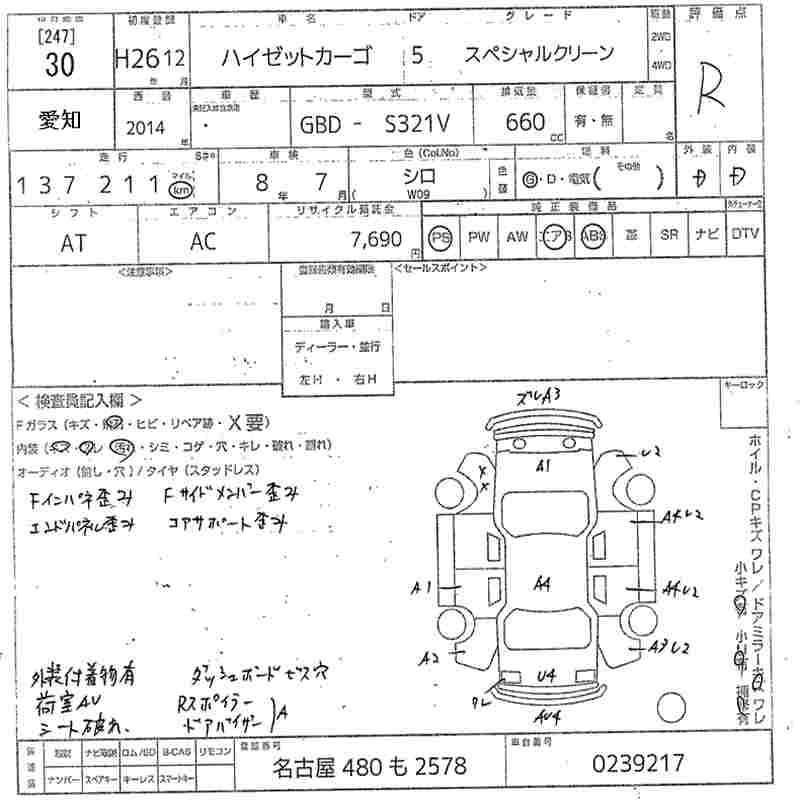 [247] 初度登録 車名 ドア グレード 駆動 評価点
30 H26 12 ハイゼットカーゴ 5 スペシャルクリーン 2WD 4WD R
年 月
愛知 西暦 車歴 型式 排気量 保証書 定員
2014 年 ・ GBD - S321V 660 CC 有・無 名
走行 車検 色(Col.No) 色替 燃料 その他 外装 内装
137211 マイル km 8年 7月 シロ ( W09 ) G・D・電気( ) D D
シフト エアコン リサイクル預託金 純正装備品
AT AC 7,690円 PS PW AW エアB ABS 革 SR ナビ DTV
<注意事項> <セールスポイント>
月 日
輸入車
ディーラー・並行
左H ・ 右H
キーロック
< 検査員記入欄 >
Fガラス (キズ・・ヒビ・リペア跡・X要)
内装 (キズ・・汚れ・シミ・コゲ・穴・キレ・破れ・割れ)
オーディオ (無し・穴) / タイヤ (スタッドレス)
Fインパネ歪み Fサイドメンバー歪み
エンドパネル歪み コアサポート歪み
ズレA3
A1
X X
U2
A4U2
A1 A4 A4U2
A2 A3U2
ワレ U4
AU4
ホイル・CPキズワレ/ドアミラーキズワレ
外装付着物有 ダッシュボードビス穴
荷室AU Rスポイラー
シート破れ、 ドアバイザー )A
ナビ取説 ロム/SD B-CAS リモコン 登録番号 車台番号
ナンバー スペアキー キーレス スマートキー 名古屋 480 も 2578 0239217